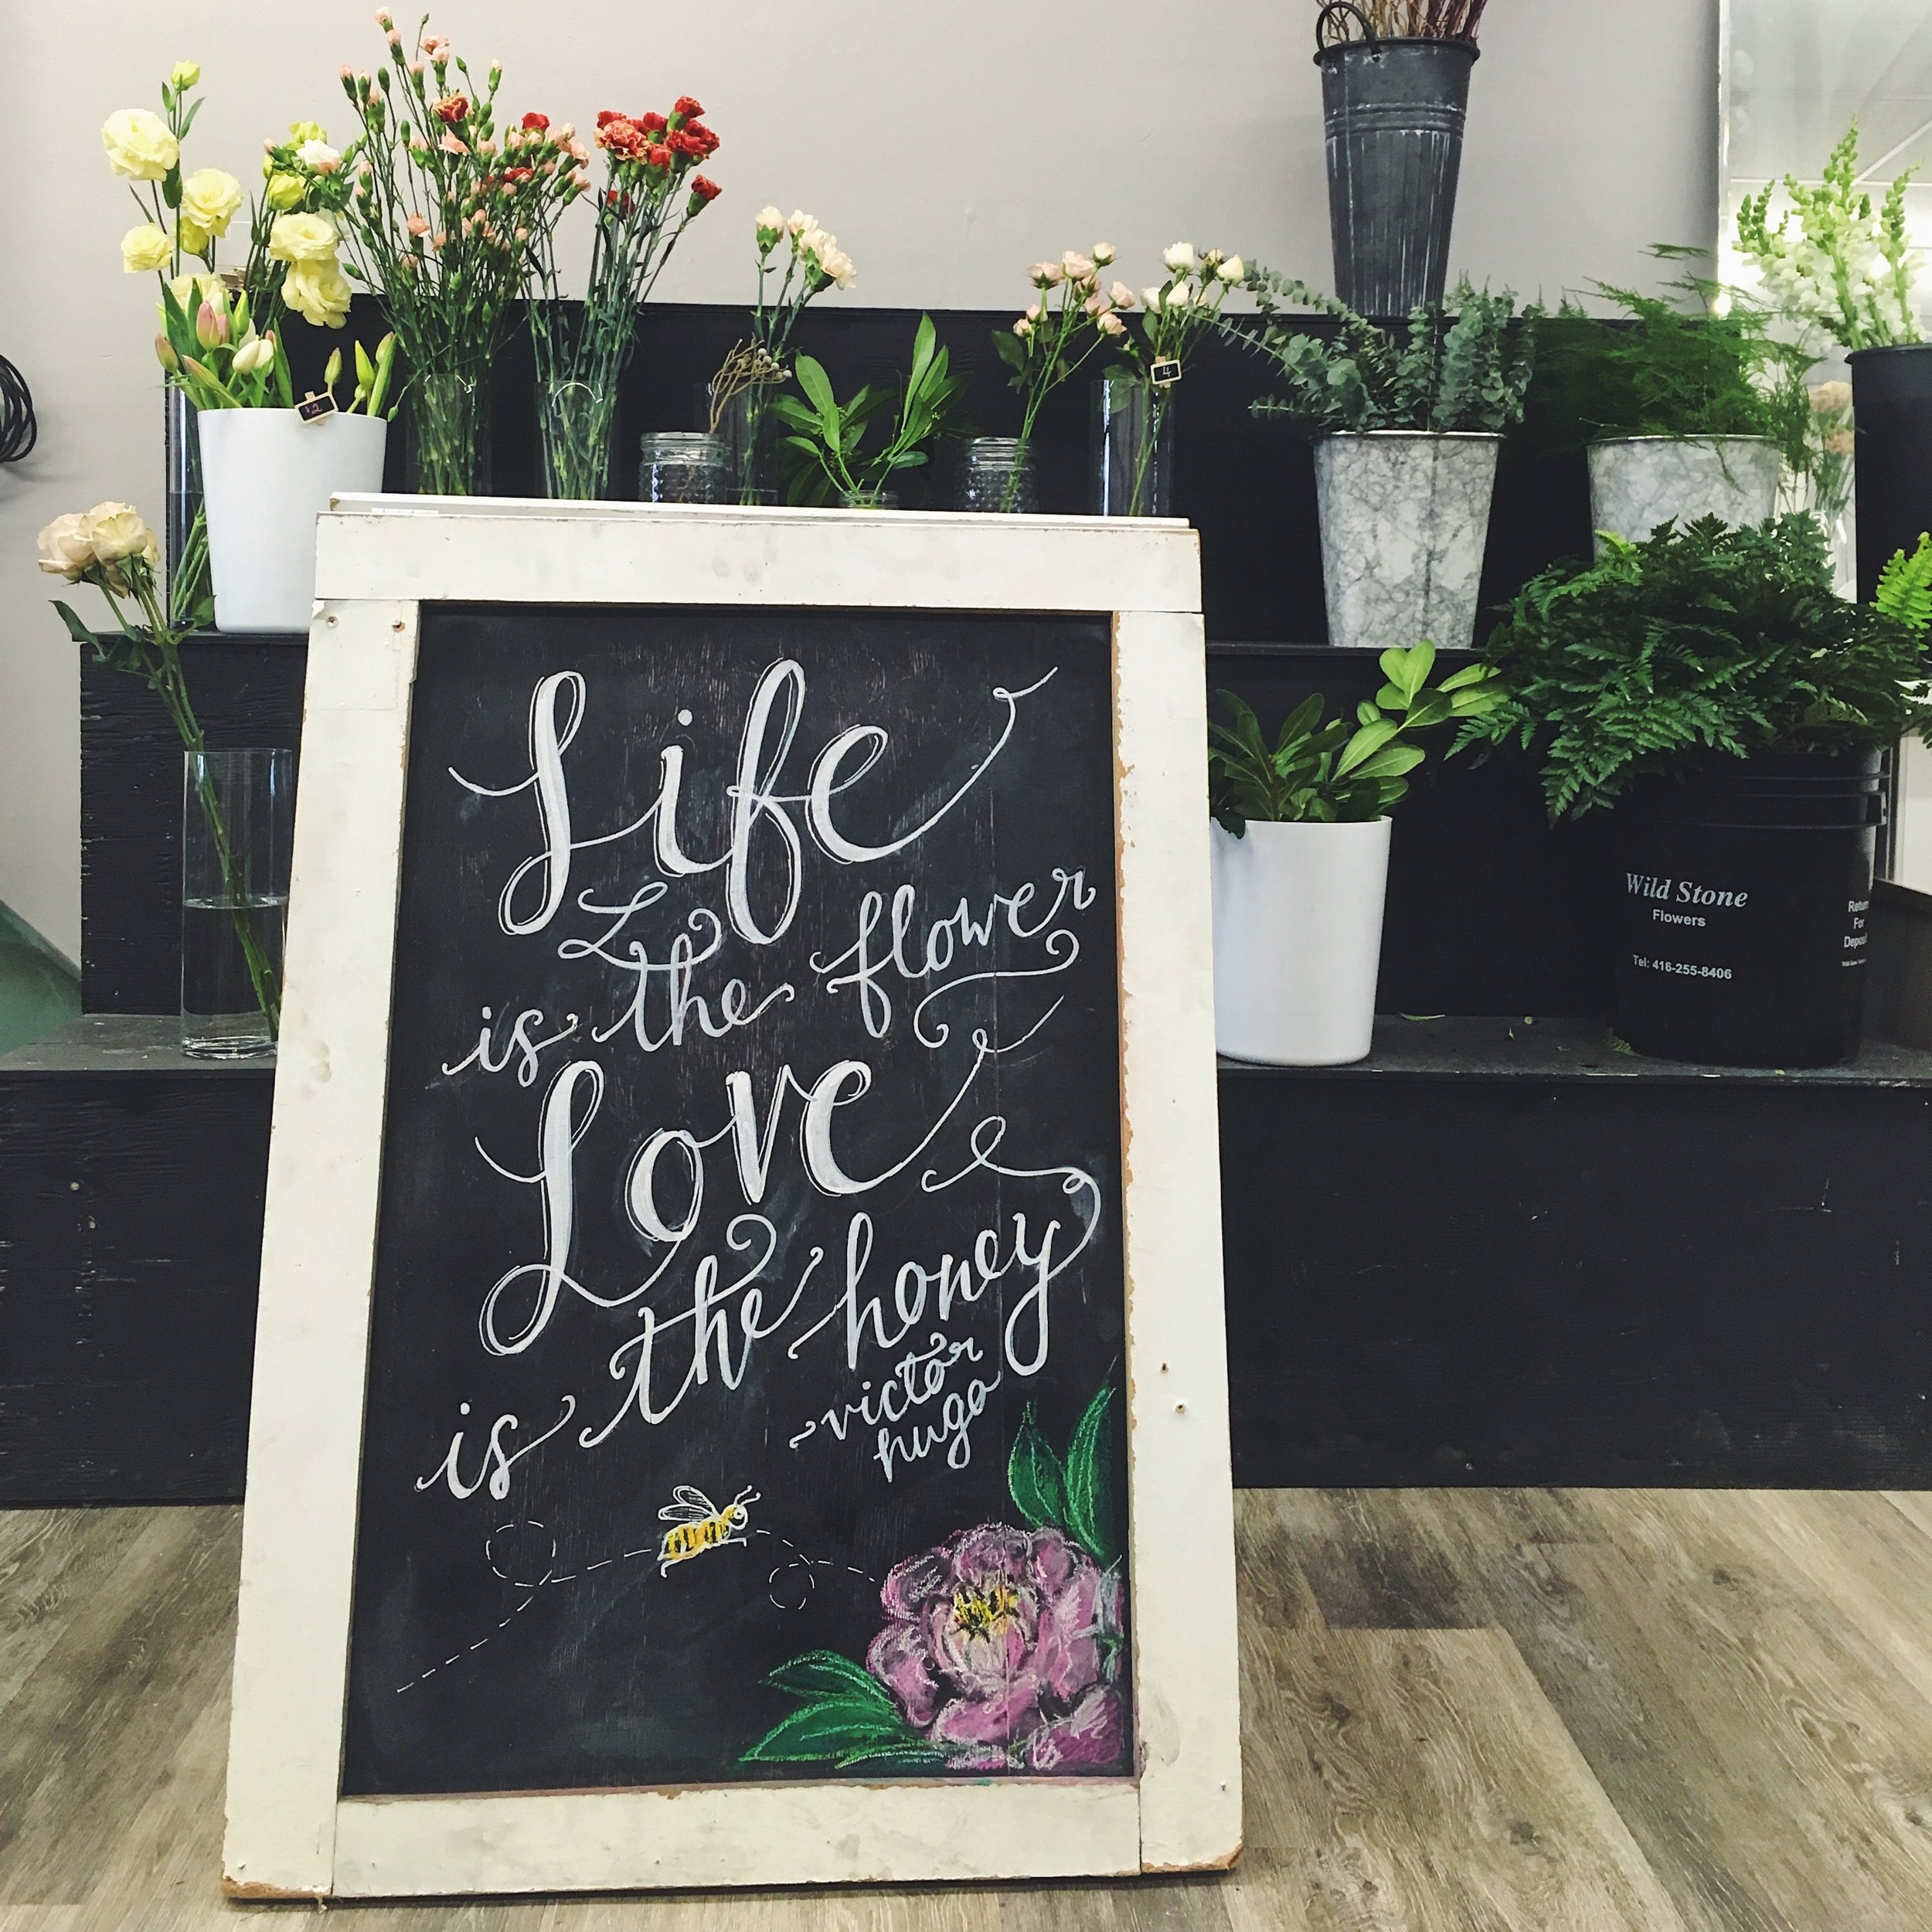 Life
is the flower
Love
is the honey
victor
hugo
Wild Stone
Flowers
Tel: 416-255-8406
For
4